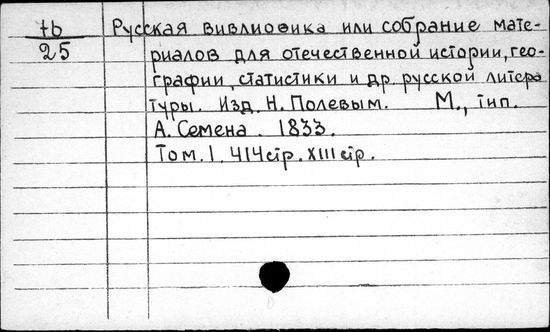 tb Русская вивлиоѳика или собрание мате-
25 риалов для отечественной истории, гео-
графии, статистики и др. русской литера
туры. Изд. Н. Полевым. М., тип.
А. Семена. 1833.
Том. 1. 414 стр. XIII стр.